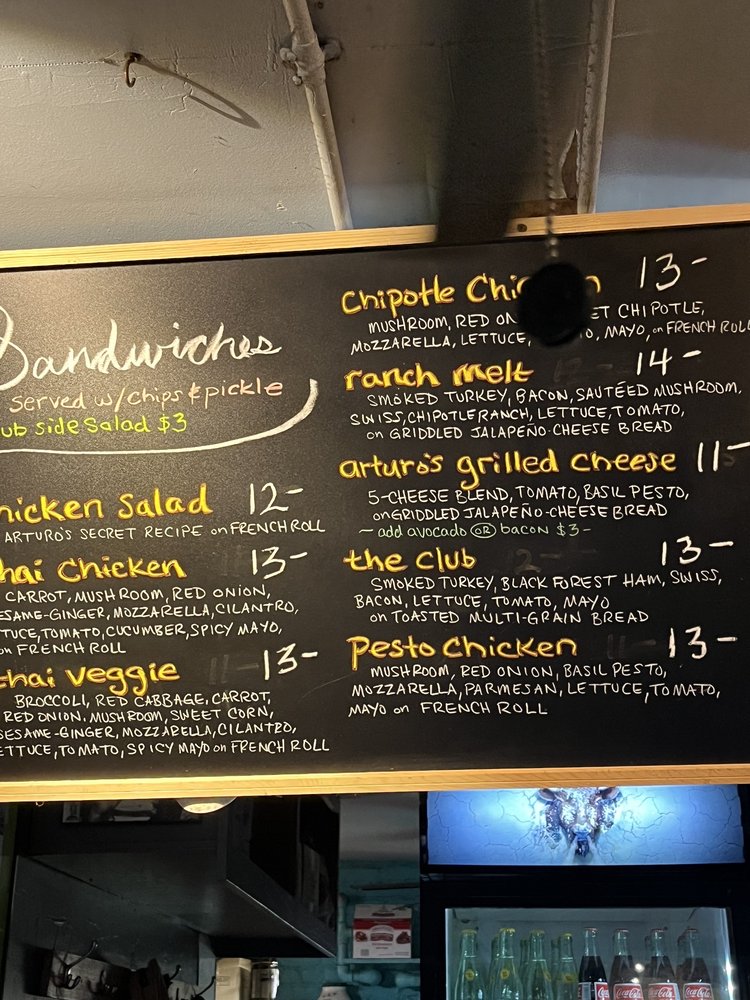 Sandwiches
served w/chips & pickle
side salad $3
Salad 12-
ARTURO'S SECRET RECIPE on FRENCH ROLL
Chicken 13-
CARROT, MUSHROOM, RED ONION,
SESAME-GINGER, MOZZARELLA, CILANTRO,
LETTUCE, TOMATO, CUCUMBER, SPICY MAYO,
on FRENCH ROLL
thai veggie 13-
BROCCOLI, RED CABBAGE, CARROT,
RED ONION, MUSHROOM, SWEET CORN,
SESAME-GINGER, MOZZARELLA, CILANTRO,
LETTUCE, TOMATO, SPICY MAYO on FRENCH ROLL
Chipotle 13-
MUSHROOM, RED CHIPOTLE,
MOZZARELLA, LETTUCE, MAYO, on FRENCH ROLL
ranch melt 14-
SMOKED TURKEY, BACON, SAUTÉED MUSHROOM,
SWISS, CHIPOTLE RANCH, LETTUCE, TOMATO,
on GRIDDLED JALAPEÑO-CHEESE BREAD
arturo's grilled cheese 11-
5-CHEESE BLEND, TOMATO, BASIL PESTO,
on GRIDDLED JALAPEÑO-CHEESE BREAD
~ add avocado OR bacon $3 -
the club 13-
SMOKED TURKEY, BLACK FOREST HAM, SWISS,
BACON, LETTUCE, TOMATO, MAYO
on TOASTED MULTI-GRAIN BREAD
Pesto Chicken 13-
MUSHROOM, RED ONION, BASIL PESTO,
MOZZARELLA, PARMESAN, LETTUCE, TOMATO,
MAYO on FRENCH ROLL
Coca-Cola
Coca-Cola
Coca-Cola